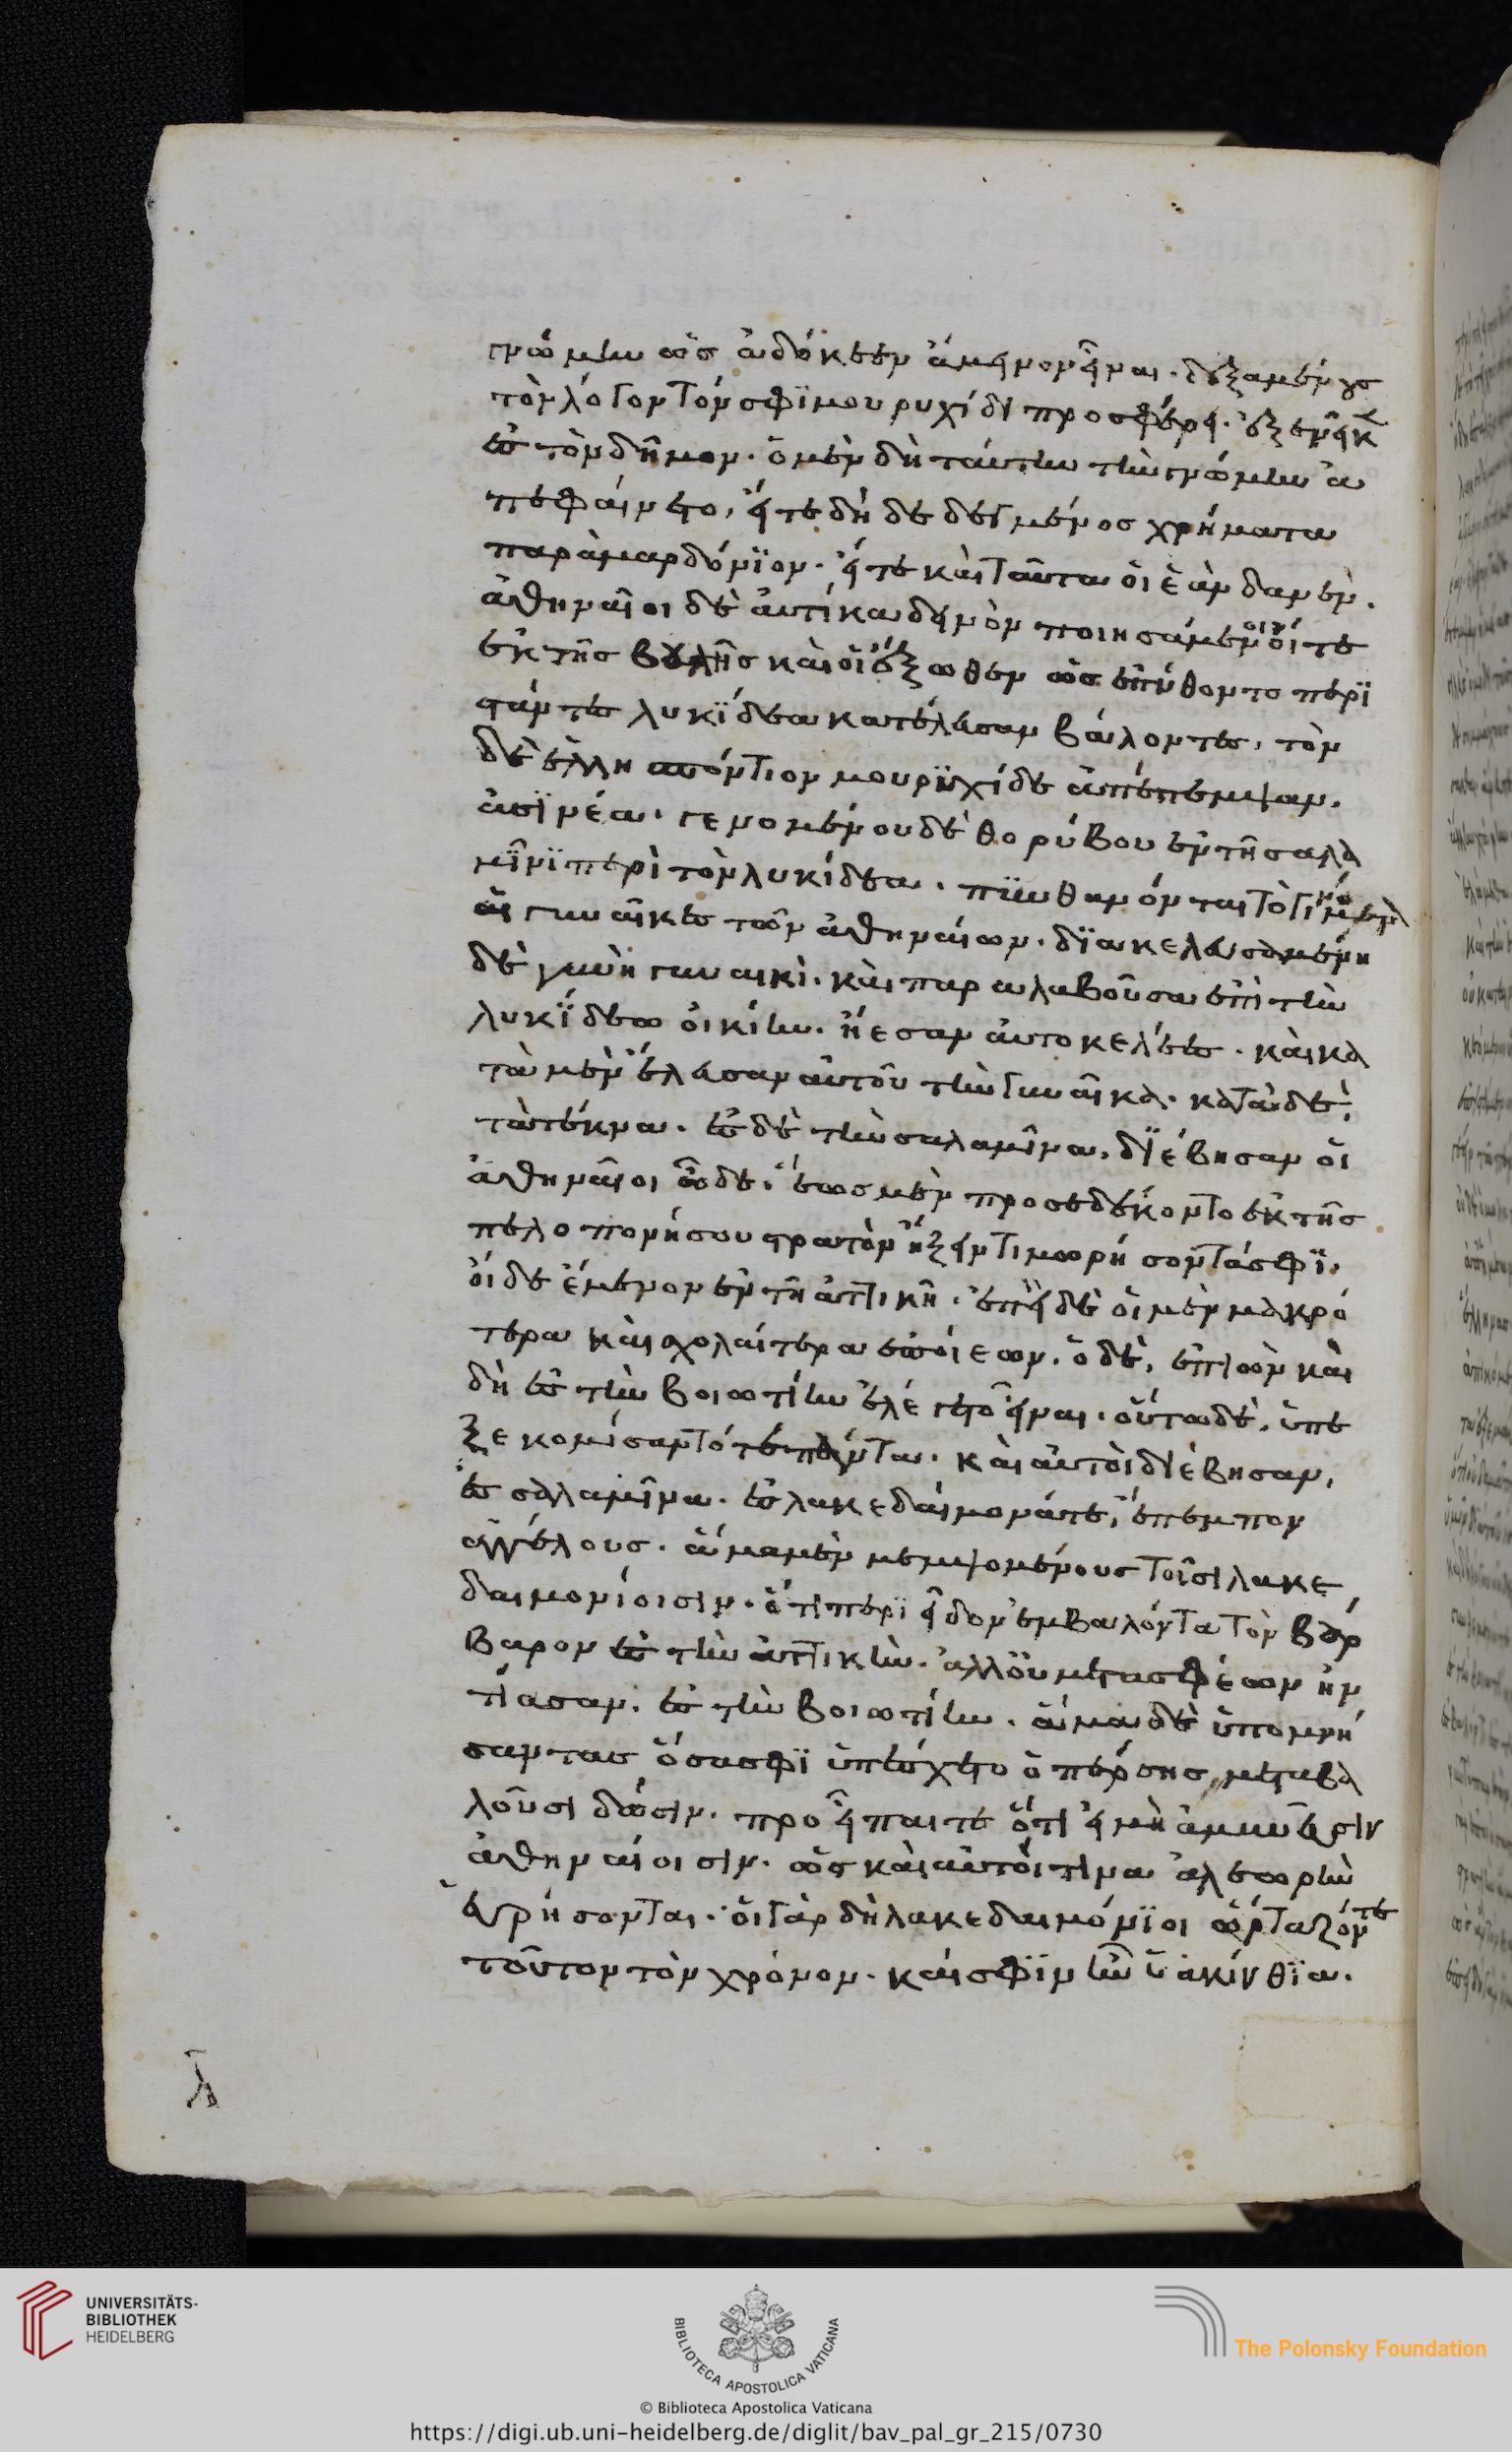 γνώμην ὡς ἐδόκεεν ἄμεινον εἶναι· δεξαμένους
τὸν λόγον τόν σφϊ μουρυχίδι προσφέρει· ἐξενεῖκαι
ἐς τὸν δῆμον· ὁ μὲν δὴ ταύτην τὴν γνώμην ἀ
πεφαίνετο, εἴτε δὴ δεδεγμένος χρήματα
παρὰ μαρδόνϊον· εἴτε καὶ ταῦτα οἱ ἑάνδανεν.
ἀθηναῖοι δὲ αὐτίκα δεινὸν ποιησάμενοι οἵ τε
ἐκ τῆς βουλῆς καὶ οἱ ἔξωθεν ὡς ἐπύθοντο περϊ
στάντες λυκϊδεα κατέλευσαν βάλοντες, τὸν
δὲ ἑλλησπόντιον μουρϊχίδε ἀπέπεμψαν.
ἀσϊνέα· γενομένου δὲ θορύβου ἐν τῆ σαλα
μῖνϊ περὶ τὸν λυκίδεα. πϊυνθανόνται τὸ γινόμενον
αἱ γυναῖκες τῶν ἀθηναίων. δϊακελευσαμένη
δὲ γυνὴ γυναικὶ. καὶ παραλαβοῦσα ἐπὶ τὴν
λυκΐδεω οἰκίην. ἤεσαν αὐτοκελέες. καὶ κα
τὰ μὲν ἔλευσαν αὐτοῦ τὴν γυναῖκα. κατὰ δὲ,
τὰ τέκνα. ἐς δὲ τὴν σαλαμῖνα, δϊέβησαν οἱ
ἀθηναῖοι ὧδε. ἕως μὲν προσεδέκοντο ἐκ τῆς
πελοπονήσου στρατὸν ἥξειν τιμωρήσοντά σφϊ.
οἱ δε ἔμενον ἐν τῆ ἀττικῆ. ἐπεὶ δὲ οἱ μὲν μακρό
τερα καὶ σχολαίτερα ἐποίεων. ὁ δὲ, ἐπιὼν καὶ
δὴ ἐς τὴν βοιωτίην ἐλέγετο εἶναι. οὕτω δὲ, ὑπε
ξεκομίσαντό τε πάντα. καὶ αὐτοὶ διέβησαν,
ἐς σαλαμῖνα. ἐς λακεδαίμονά τε, ἔπεμπον
ἀγγέλους. ἅμα μὲν μεμψομένους τοῖσι λακε
δαιμονίοισιν. ὅτι περϊ εἶδον ἐμβαλόντα τὸν βάρ
βαρον ἐς τὴν ἀττικὴν. ἀλλ οὐ μετασφέων ἠν
τίασαν. ἐς τὴν βοιωτίην. ἅμα δὲ ὑπομνή
σαντας ὅσα σφϊ ὑπέσχετο ὁ πέρσης, μεταβα
λοῦσι δώσιν. προεῖπαι τε ὅτι εἰ μὴ ἀμυνεῦσιν
ἀθηναίοισιν. ὡς καὶ αὐτοί τινα ἀλεωρὴν
εὑρήσονται. οἱ γὰρ δὴ λακεδαιμόνϊοι ὥρταζόν τε
τοῦτον τὸν χρόνον. καί σφϊν ἦν ὑακίνθϊα.
λ
UNIVERSITÄTS-
BIBLIOTHEK
HEIDELBERG
BIBLIOTECA APOSTOLICA VATICANA
The Polonsky Foundation
© Biblioteca Apostolica Vaticana
https://digi.ub.uni-heidelberg.de/diglit/bav_pal_gr_215/0730